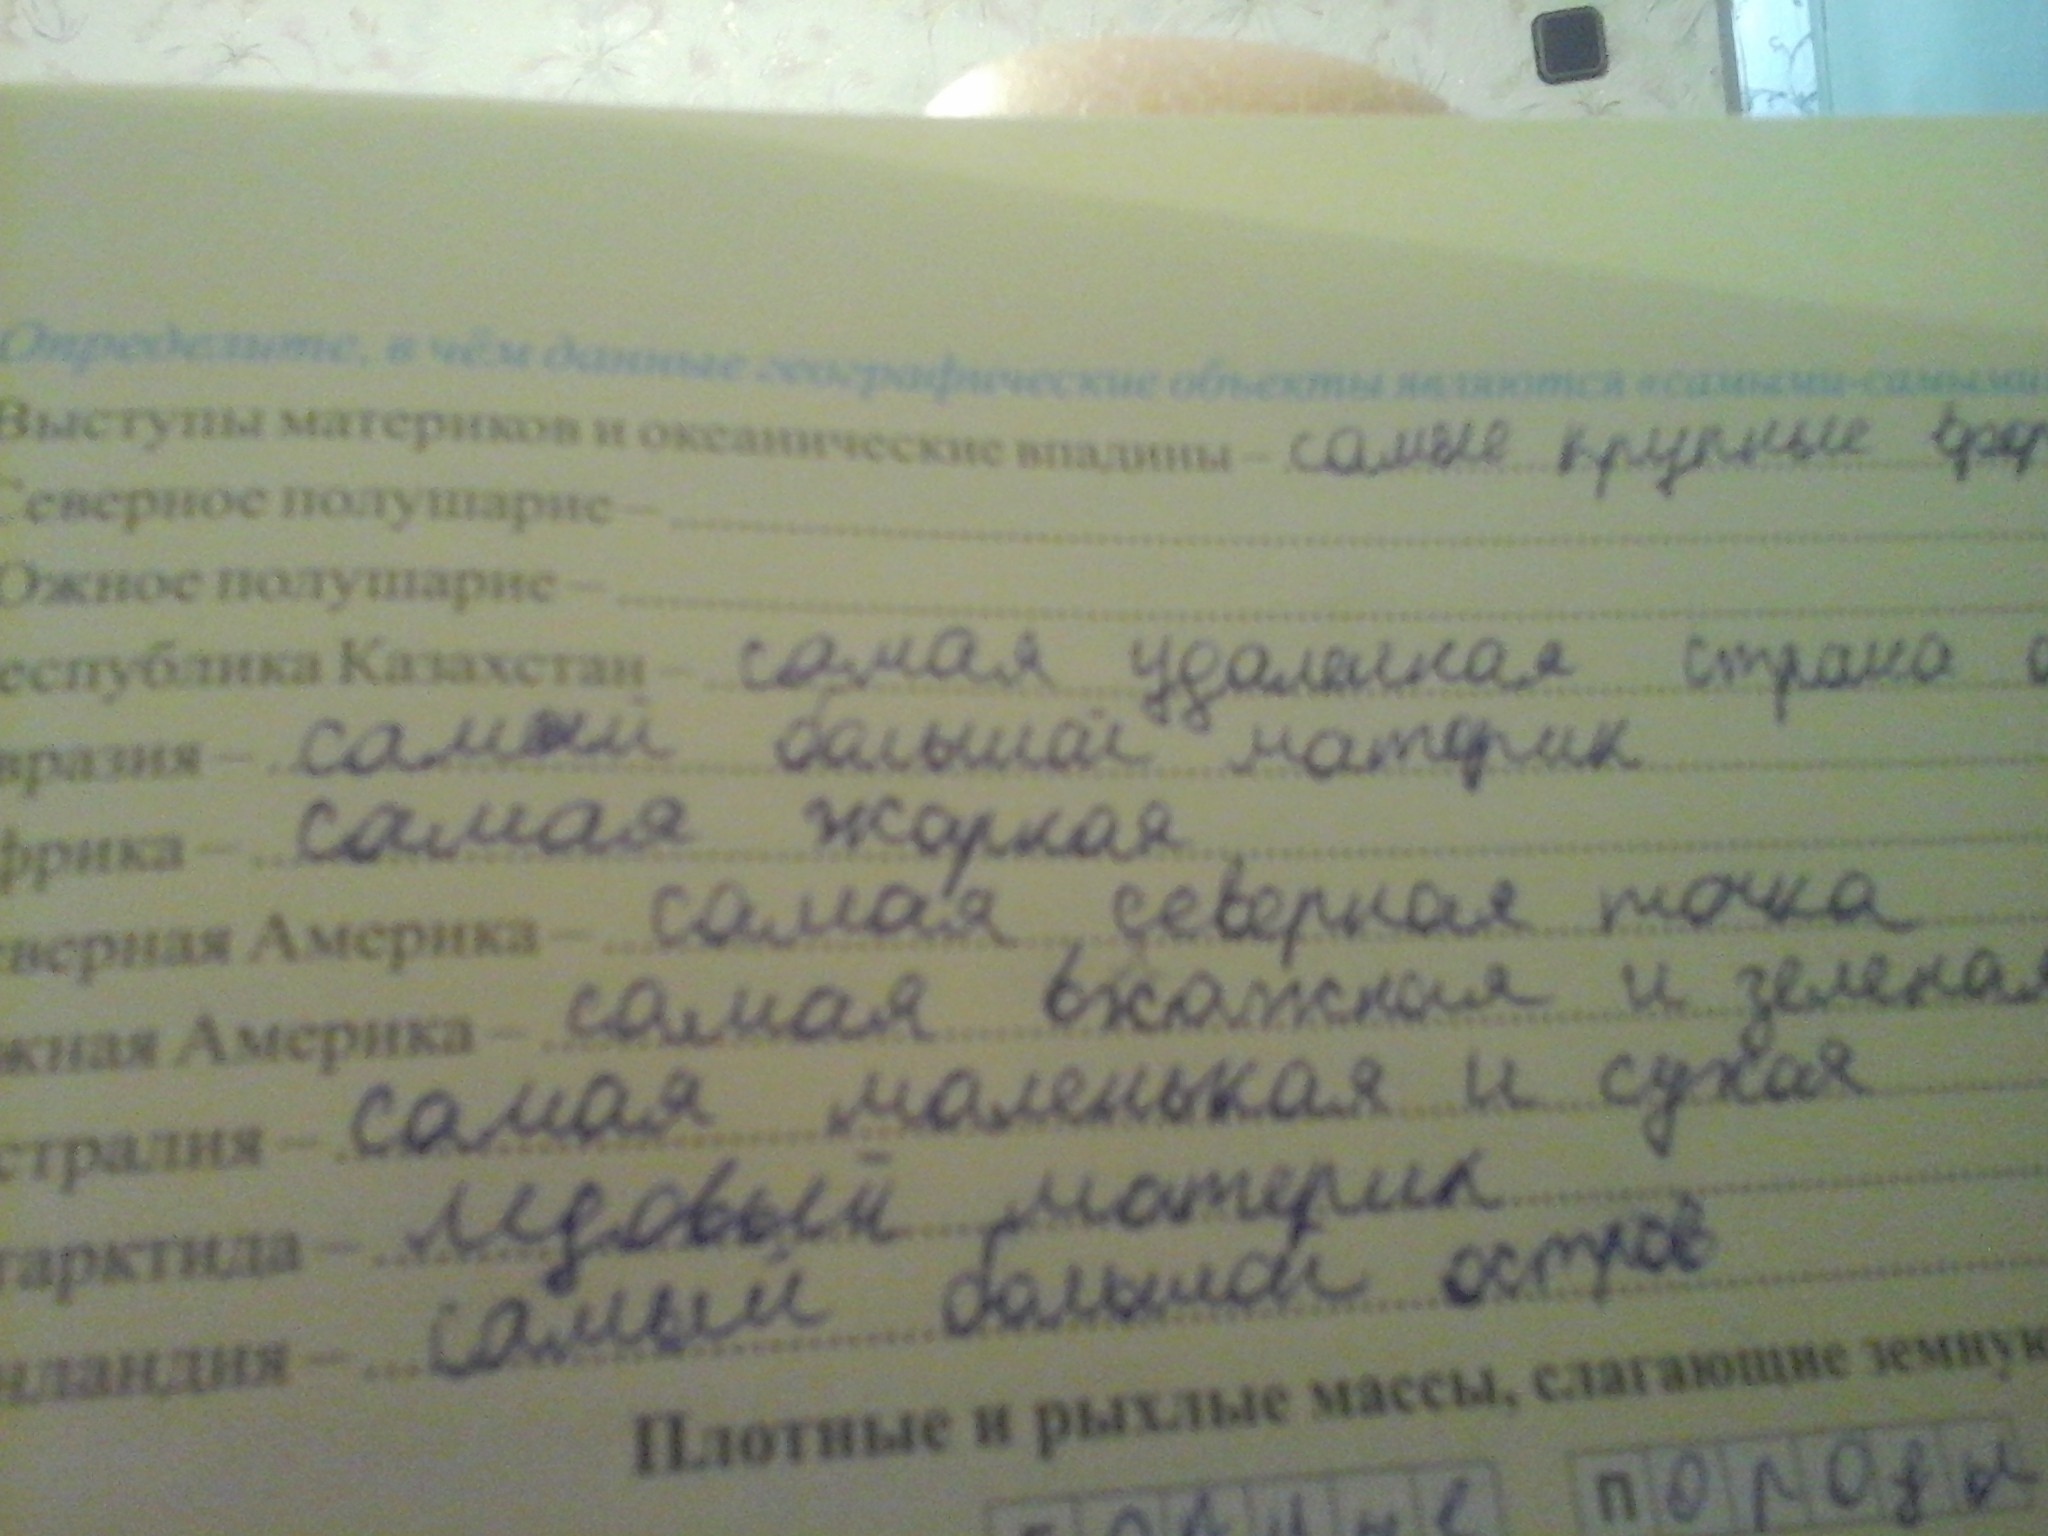 Определите, в чём данные географические объекты являются «самыми-самыми
Выступы материков и океанические впадины – самые крупные фор
Северное полушарие –
Южное полушарие –
еспублика Казахстан – самая удаленная страна о
вразия – самый большой материк
фрика – самая жаркая
еверная Америка – самая северная точка
жная Америка – самая влажная и зеленая
стралия – самая маленькая и сухая
тарктида – ледовый материк
нландия – самый большой остров
Плотные и рыхлые массы, слагающие земную
породы